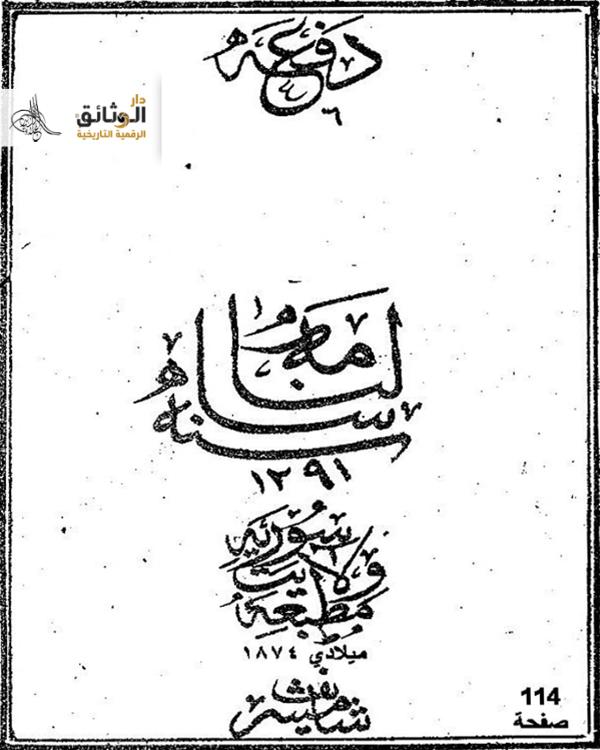 دفعه
٦
دار
الوثائق
الرقمية التاريخية
سالنامه
سنه
١٢٩١
سوريه
ولايت
مطبعه
ميلادي ١٨٧٤
114
صفحة